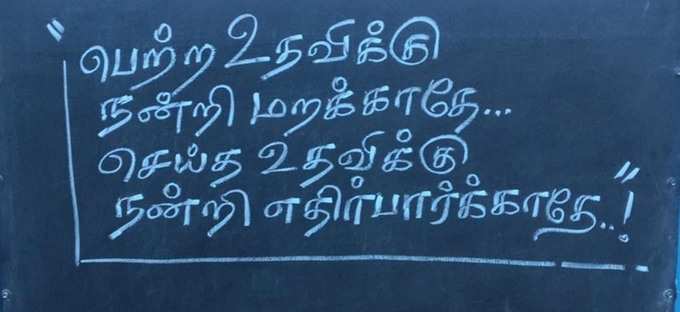 "பெற்ற உதவிக்கு
நன்றி மறக்காதே...
செய்த உதவிக்கு
நன்றி எதிர்பார்க்காதே..!"